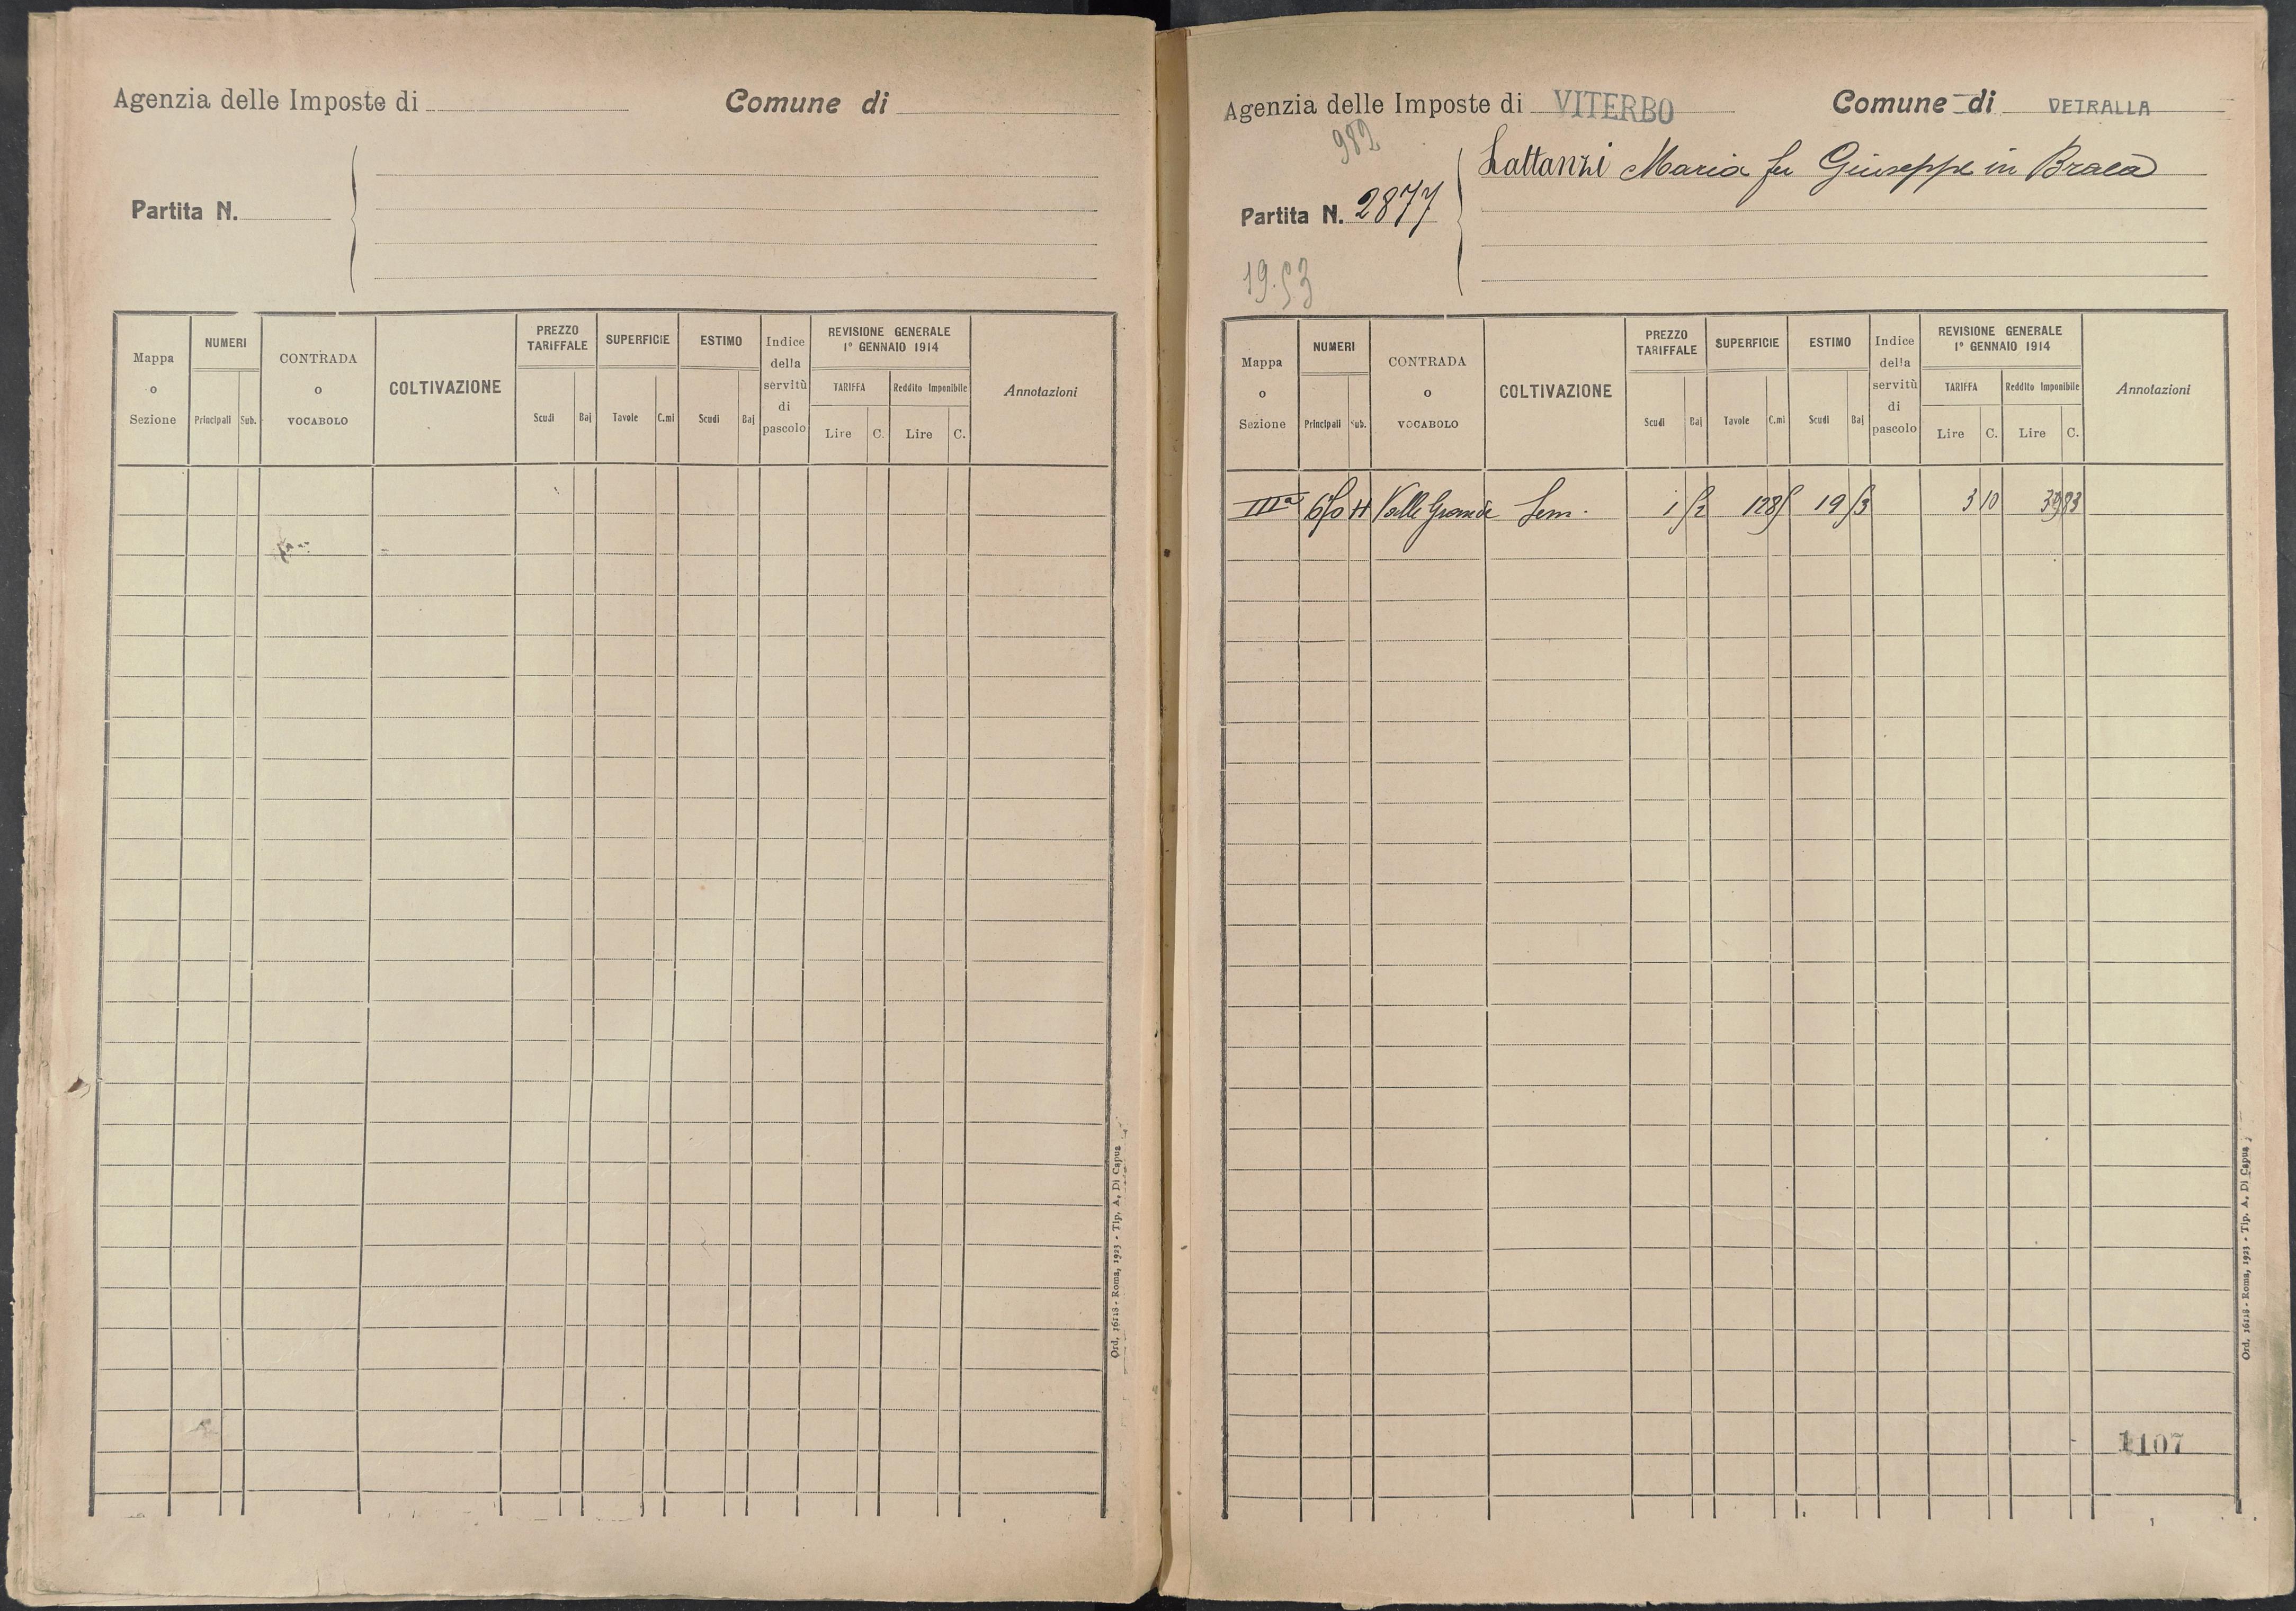 Agenzia delle Imposte di
Comune di
Partita N.
Mappa o Sezione
NUMERI
Principali Sub.
CONTRADA o VOCABOLO
COLTIVAZIONE
PREZZO TARIFFALE
Scudi Baj
SUPERFICIE
Tavole C.mi
ESTIMO
Scudi Baj
Indice della servitù di pascolo
REVISIONE GENERALE
1° GENNAIO 1914
TARIFFA Reddito Imponibile
Lire C. Lire C.
Annotazioni
Ord. 16118 - Roma, 1923 - Tip. A. Di Capua
Agenzia delle Imposte di VITERBO
Comune di VETRALLA
982
Lattanzi Maria fu Giuseppe in Braca
Partita N. 2877
19.53
Mappa o Sezione
NUMERI
Principali Sub.
CONTRADA o VOCABOLO
COLTIVAZIONE
PREZZO TARIFFALE
Scudi Baj
SUPERFICIE
Tavole C.mi
ESTIMO
Scudi Baj
Indice della servitù di pascolo
REVISIONE GENERALE
1° GENNAIO 1914
TARIFFA Reddito Imponibile
Lire C. Lire C.
Annotazioni
IIIª Valle Grande Sem. 1 52 12 85 19 53 3 10 39 83
1107
Ord. 16118 - Roma, 1923 - Tip. A. Di Capua